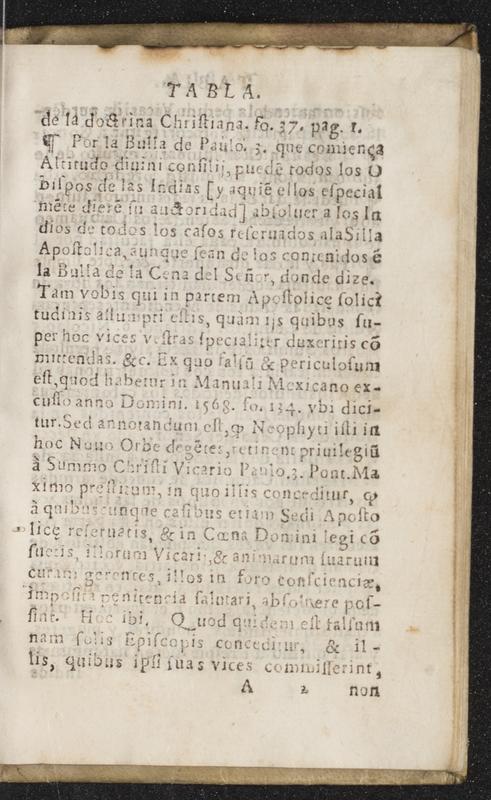 TABLA.
de la doctrina Christiana. fo. 37. pag. 1.
¶ Por la Bulla de Paulo. 3. que comiença
Altitudo diuini consilij, puedē todos los O
bispos de las Indias [y aquiē ellos especial
mēte dierē su auctoridad] absoluer a los In
dios de todos los casos reseruados alaSilla
Apostolica, aunque sean de los contenidos ē
la Bulla de la Cena del Señor, donde dize.
Tam vobis qui in partem Apostolicę solici
tudinis assumpti estis, quàm ijs quibus su-
per hoc vices vestras specialiter duxeritis cō
mittendas. &c. Ex quo falsū & periculosum
est, quod habetur in Manuali Mexicano ex-
cusso anno Domini. 1568. fo. 134. vbi dici-
tur. Sed annotandum est, ꝙ Neophyti isti in
hoc Nouo Orbe degētes, retinent priuilegiū
à Summo Christi Vicario Paulo. 3. Pont. Ma
ximo prestitum, in quo illis conceditur, ꝙ
à quibuscunque casibus etiam Sedi Aposto
licę reseruatis, & in Cœna Domini legi cō
suetis, illorum Vicarij, & animarum suarum
curam gerentes, illos in foro conscienciæ,
imposita penitencia salutari, absoluere pos-
sint. Hoc ibi. Quod quidem est falsum
nam solis Episcopis conceditur, & il-
lis, quibus ipsi suas vices commisserint,
A 2 non